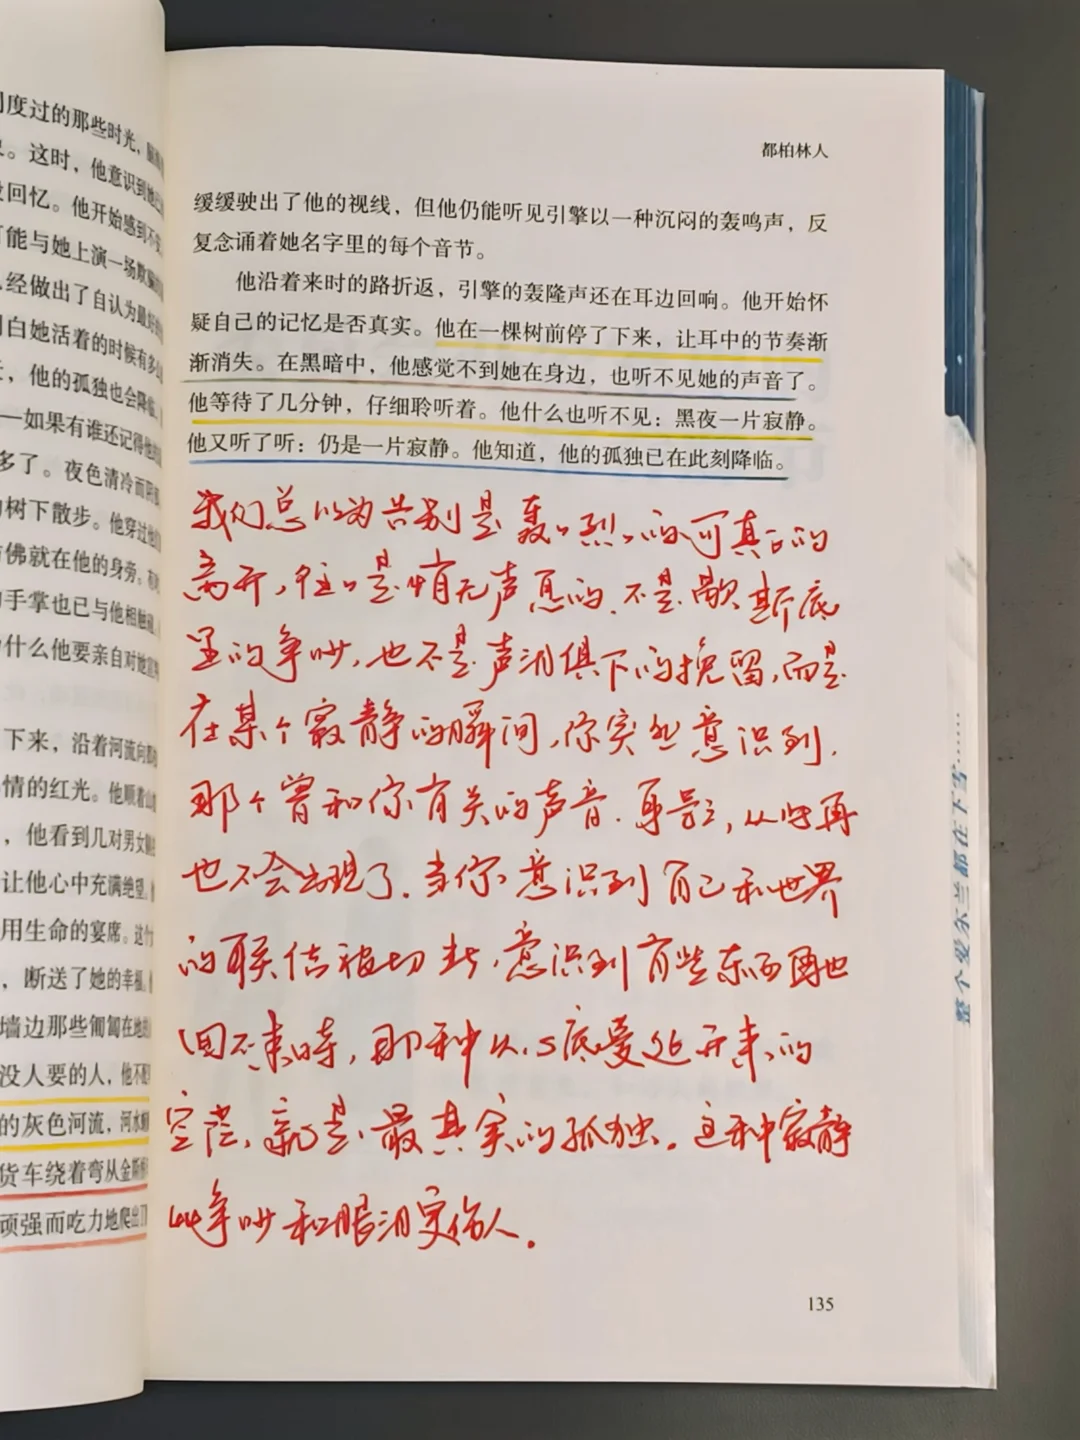 度过的那些时光，
。这时，他意识到她已
回忆。他开始感到不
可能与她上演一场欺骗
经做出了自认为最好
明白她活着的时候有多么
，他的孤独也会降临，
——如果有谁还记得他的
多了。夜色清冷而阴
树下散步。他穿过他们
佛就在他的身旁。有
手掌也已与他相触碰。
什么他要亲自对她宣
下来，沿着河流向都
情的红光。他顺着山
，他看到几对男女躺
让他心中充满绝望。
用生命的宴席。这个
，断送了她的幸福。
墙边那些匍匐在地
没人要的人，他不
的灰色河流，河水
货车绕着弯从金斯
顽强而吃力地爬出了
都柏林人
缓缓驶出了他的视线，但他仍能听见引擎以一种沉闷的轰鸣声，反
复念诵着她名字里的每个音节。
他沿着来时的路折返，引擎的轰隆声还在耳边回响。他开始怀
疑自己的记忆是否真实。他在一棵树前停了下来，让耳中的节奏渐
渐消失。在黑暗中，他感觉不到她在身边，也听不见她的声音了。
他等待了几分钟，仔细聆听着。他什么也听不见：黑夜一片寂静。
他又听了听：仍是一片寂静。他知道，他的孤独已在此刻降临。
我们总以为告别是轰轰烈烈的可真正的
离开，往往是悄无声息的。不是歇斯底
里的争吵，也不是声泪俱下的挽留，而是
在某个寂静的瞬间，你突然意识到，
那个曾和你有关的声音、身影，从此再
也不会出现了。当你意识到自己和世界
的联结被切断，意识到有些东西再也
回不来时，那种从心底蔓延开来的
空茫，就是最真实的孤独。这种寂静
比争吵和眼泪更伤人。
135
整个爱尔兰都在下雪……